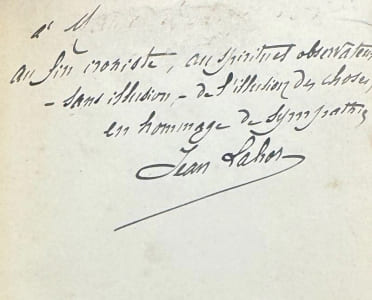 à M
au fin ironiste, au spirituel observateur
- sans illusion, - de l'illusion des choses,
en hommage de sympathie
Jean Lahor